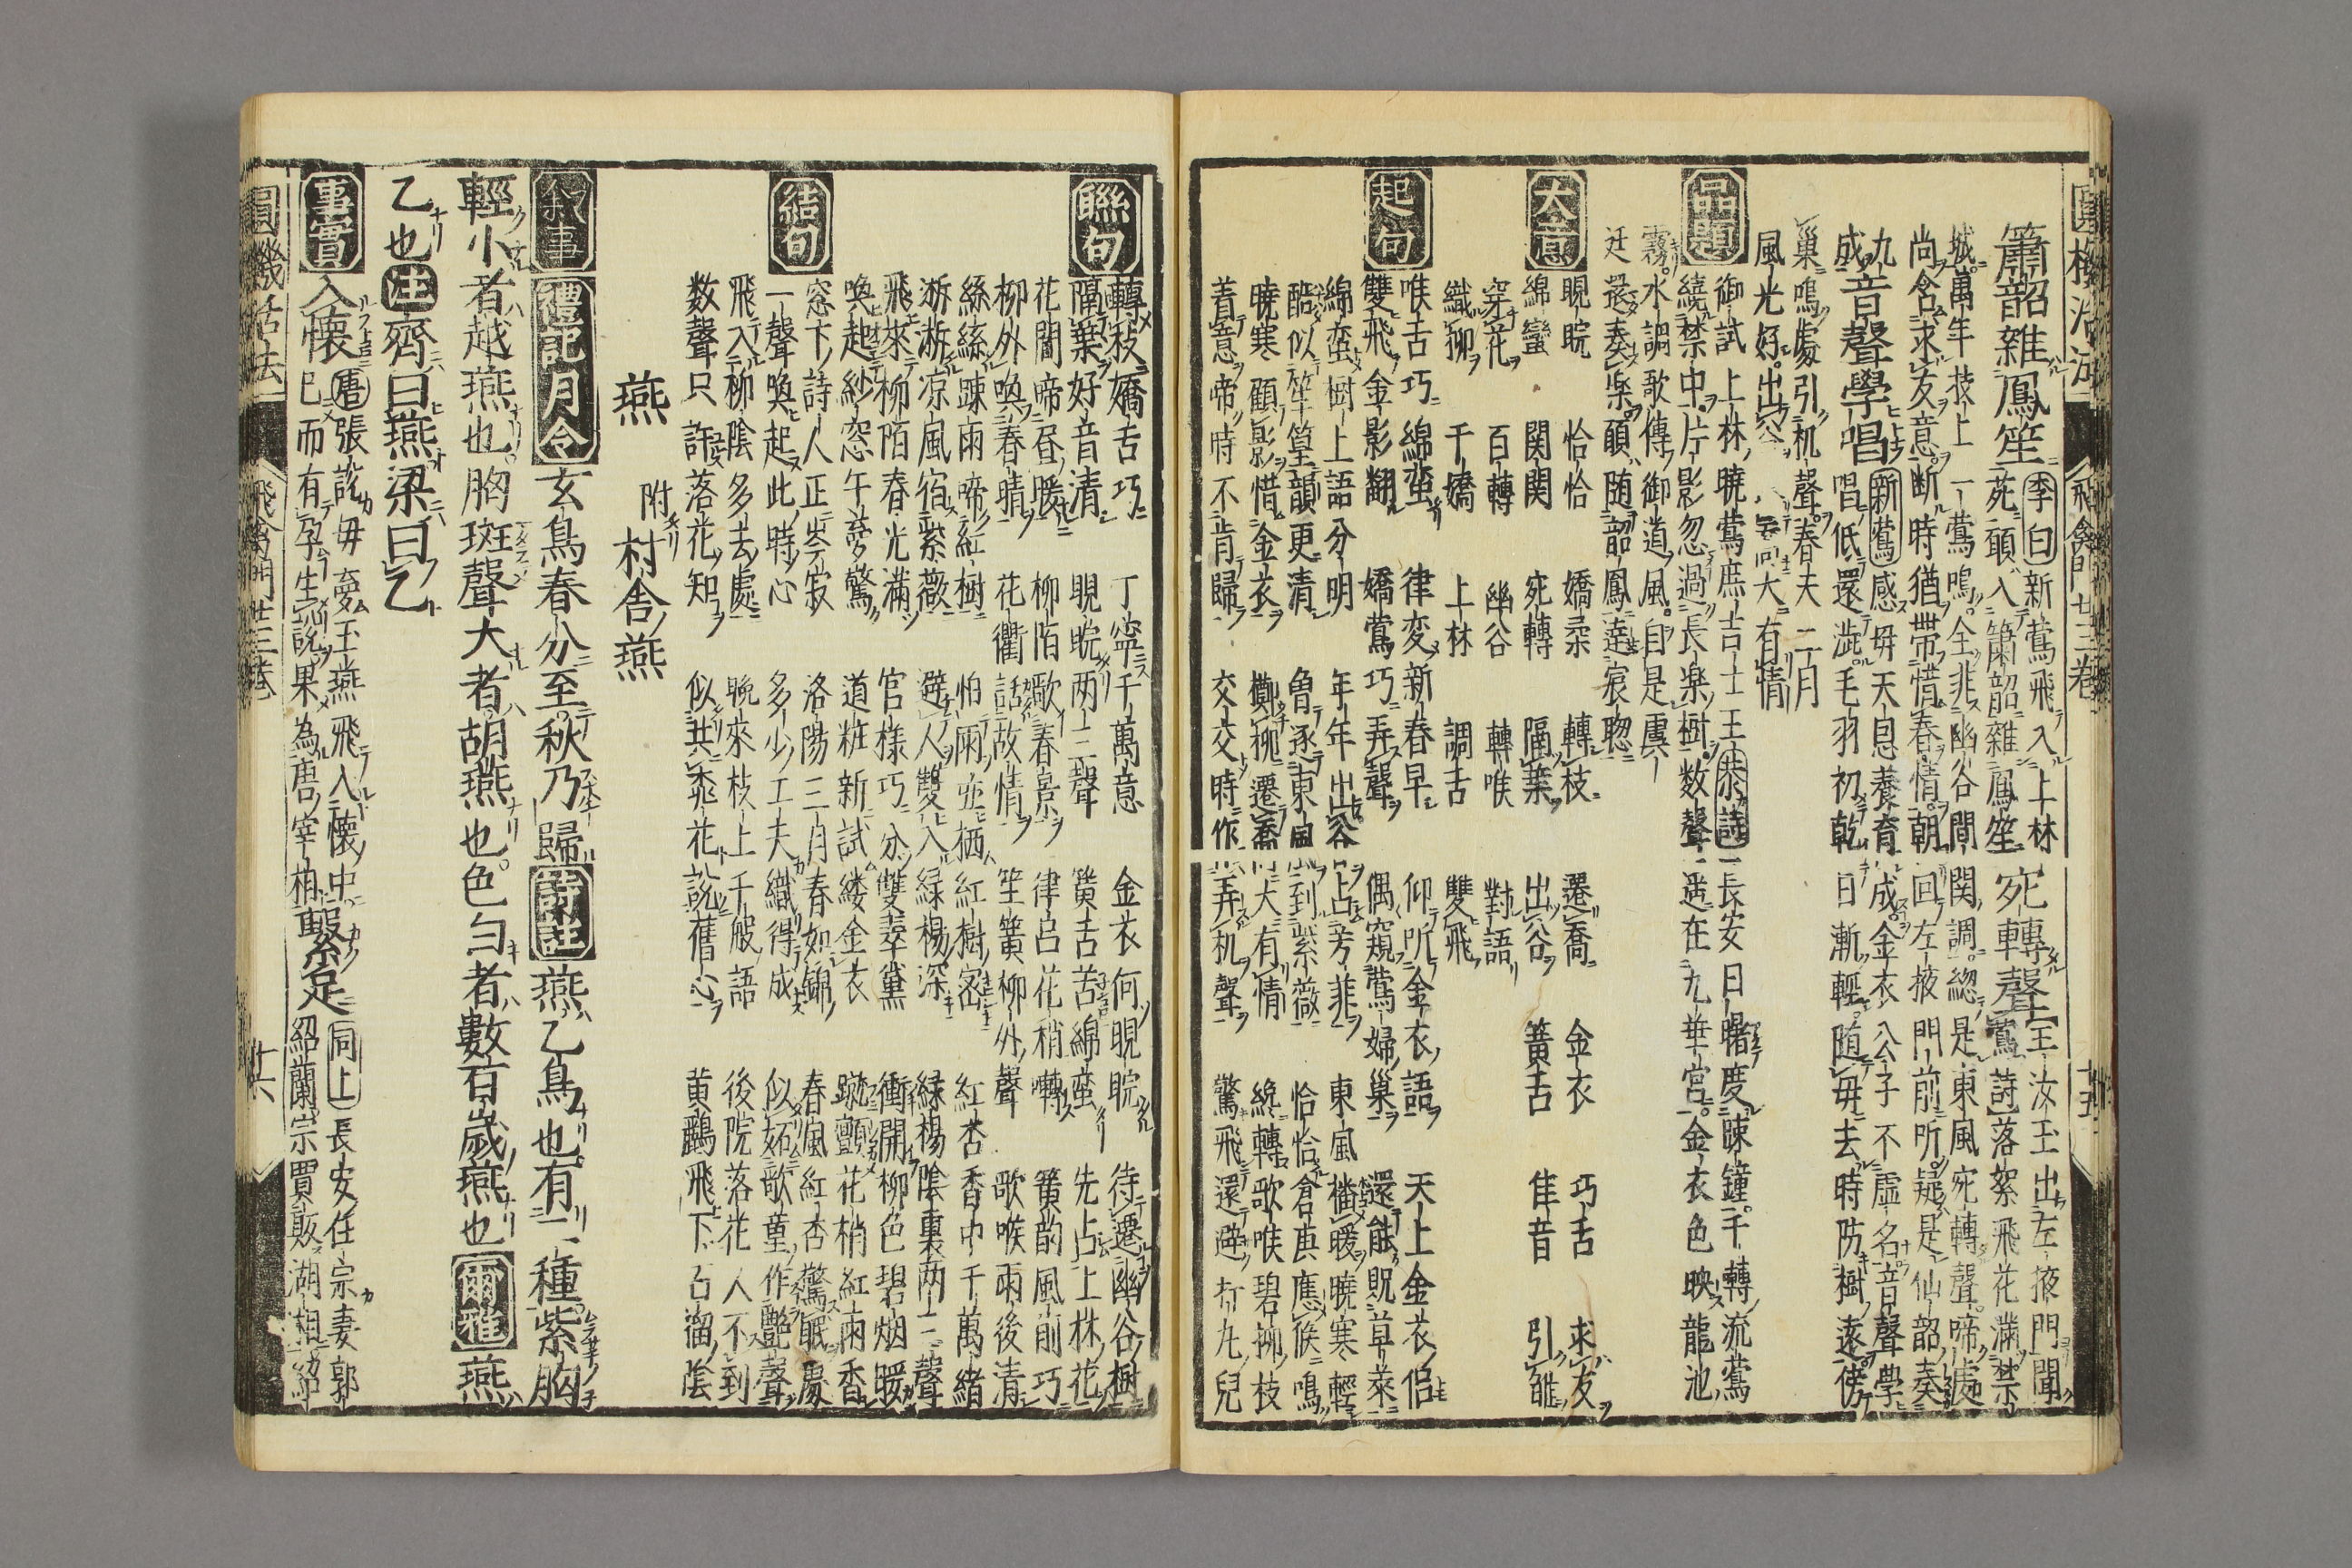 圓機活法 飛禽門廿三卷 十五
簫韶雜鳳笙 李白 新鶯飛入上林
苑頭入簫韶雜鳳笙 宛轉聲 王汝玉出左掖門聞
鶯詩落絮飛花滿禁
城萬年枝上一鶯鳴全非幽谷間關調総是東風宛轉聲啼處
尚含求友意断時猶帯惜春情朝回左掖門前听疑是仙韶奏
九成 音聲學唱 新鶯 感毋天息養育成金衣公子不虚名音聲學
唱低還澁毛羽初乾日漸輕随毋去時防樹遠傍
巢鳴處引机聲春夫二月
風光好出谷 大有情
品題 御試上林曉鶯庶吉士王 恭詩 長安日曙度踈鐘千轉流鶯
繞禁中片影忽過長楽樹数聲遥在九華宮金衣色映龍池
霧水調歌傳御道風自是虞
廷還奏楽頭随韶鳳達宸聦
大意 睍睆 恰恰 嬌柔 轉枝 遷喬 金衣 巧舌 求友
綿蠻 関関 宛轉 隔葉 出谷 簧舌 佳音 引雛
穿花 百轉 幽谷 轉喉 對語
織柳 千嬌 上林 調舌 雙飛
起句 喉舌巧綿蛮 律変新春早 仰听金衣語 天上金衣侣
雙飛金影翻 嬌鶯巧弄聲 偶窺鶯婦巢 還能貺草萊
綿蛮樹上語分明 年年出谷占芳菲 東風播暖曉寒輕
酷似笙篁韻更清 曾逐東風到紫薇 恰恰倉庚應候鳴
曉寒顧影惜金衣 擲柳遷喬大有情 繞轉歌喉碧柳枝
着意啼時不肯歸 交交時作弄机聲 驚飛還避打丸兒
聯句 轉枝嬌舌巧 丁寧千萬意 金衣何睍睆 待遷幽谷樹
隔葉好音清 睍睆两三聲 簧舌苦綿蛮 先占上林花
花間啼昼暖 柳陌歌春景 律吕花稍囀 簧韵風前巧
柳外喚春晴 花衢話故情 笙簧柳外聲 歌喉雨後清
絲絲踈雨啼紅樹 怕雨並栖紅樹密 紅杏香中千萬緒
淅淅凉風宿紫薇 避人雙入緑楊深 緑楊陰裏两三聲
飛來柳陌春光滿 官様巧分雙翠黛 衝開柳色碧烟暖
喚起紗窓午夢驚 道粧新試縷金衣 蹴顫花梢紅雨香
結句 窓下詩人正岑寂 洛陽三月春如錦 春風紅杏驚眠處
一聲喚起此時心 多少工夫織得成 似妬歌童作艶聲
飛入柳陰多去處 晩來枝上千般語 後院落花人不到
数聲只許落花知 似共桃花說舊心 黄鸝飛下石溜陰
燕 附 村舎燕
叙事 禮記月令 玄鳥春分至秋乃歸 蔡註 燕乙鳥也有一種紫胸
輕小者越燕也胸斑聲大者胡燕也色白者數百歳燕也 爾雅 燕
乙也 注 齊曰燕梁曰乙
事實 入懷 唐張說毋夢玉燕飛入懐中
已而有孕生說果為唐宰相 繫足 同上 長安任宗妻郭
紹蘭宗賈販湖湘紹
圓機活法 飛禽門廿三卷 十六